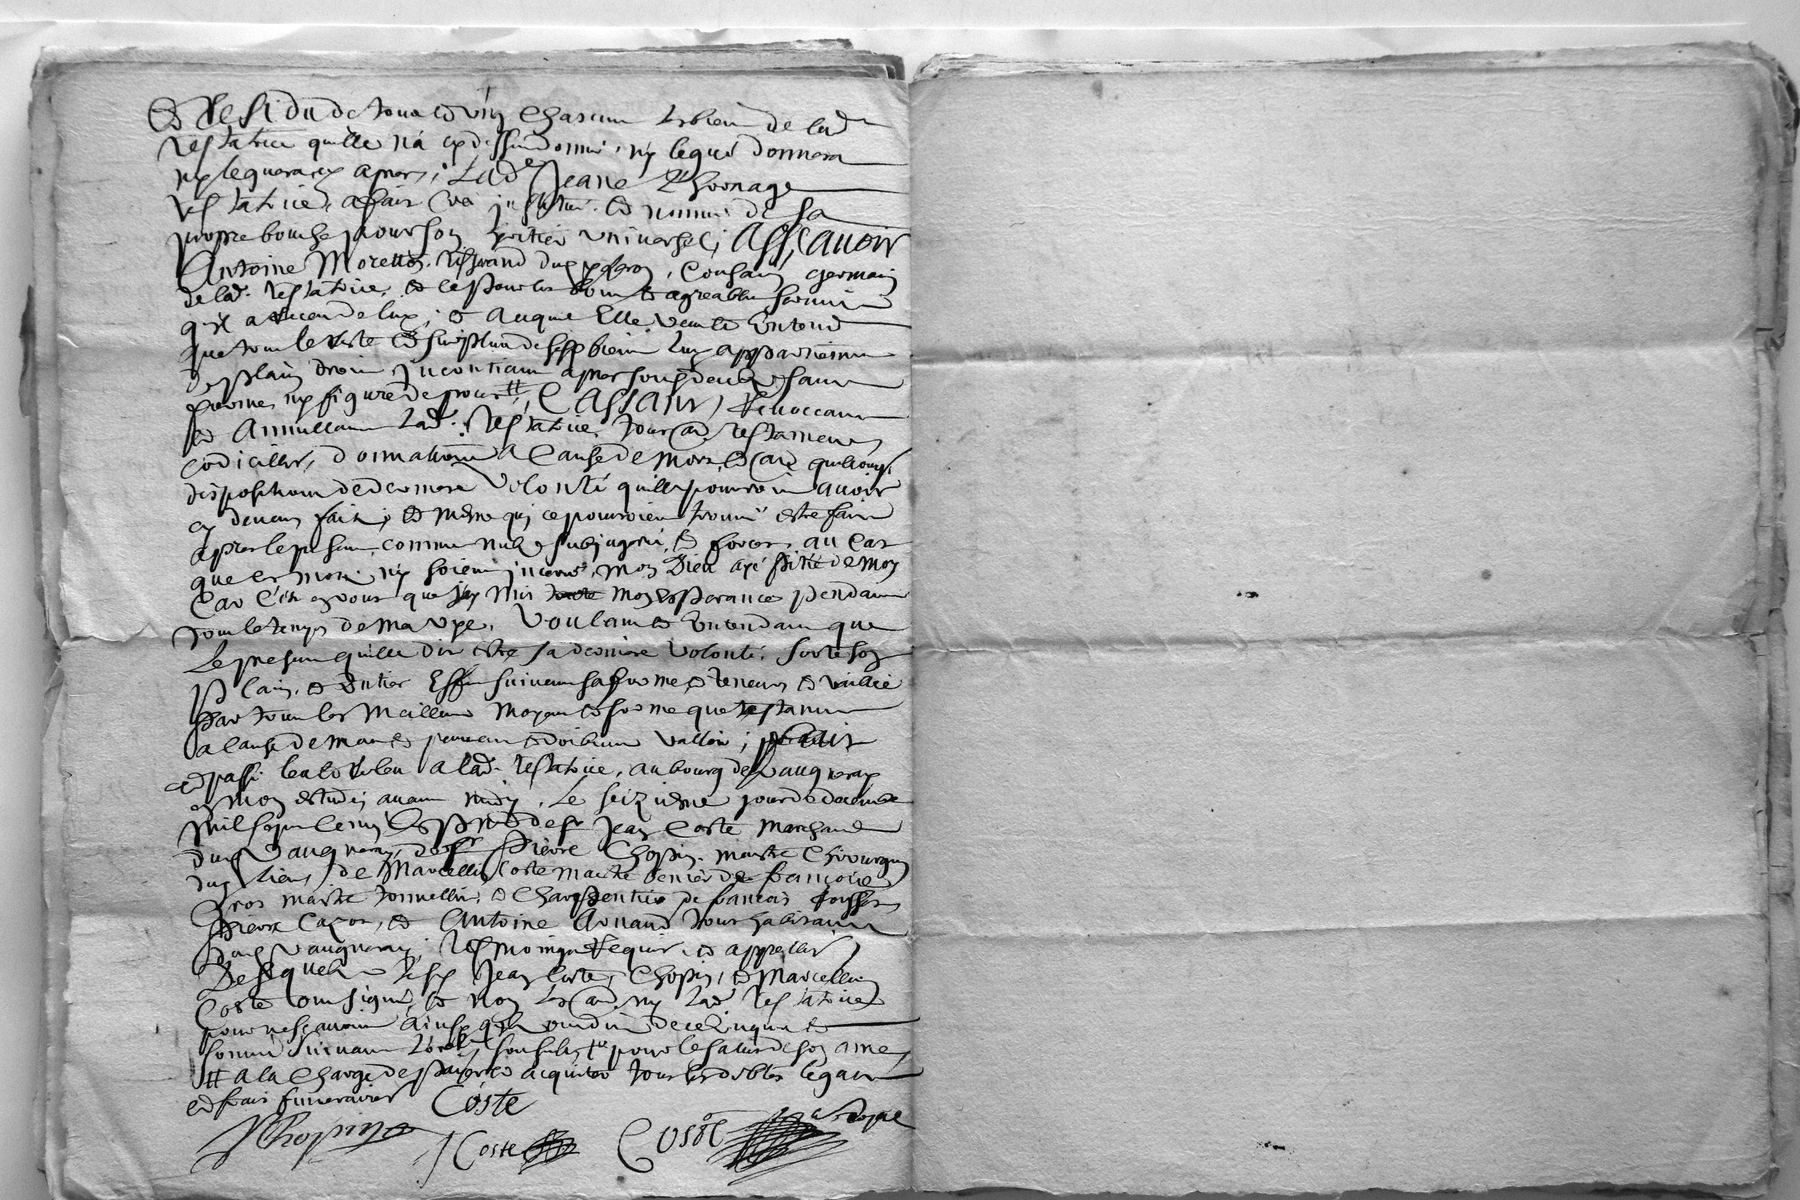 Et Residu de tous et un Chascun les biens de lad.
Testatrice quelle n'a cy dessus donné, ny legué donnera
ny leguera cy apres; Lad.e Jeane
testatrice, a fait, institué et nommé de sa
propre bouche pour son heritier universel; Assçavoir
Antoine Moretton, tisserand du cousin germain
de lad. testatrice, et ce pour les bons et agreables services
qu'il a receu de luy; et auquel Elle veut et Entend
que tout le reste et surplus de ses biens luy appartienne
de plain droit, incontinant apres son deceds, sans
forme ny figure de proces #, Cassant, Revoccant
et Annullant Lad. Testatrice, tous autres testaments
codicilles, donnations a Cause de Mort, et autres quelconques
dispositions de derniere Volonté quelle pourroit avoir
cy devant fait; et mesme qui ce pourroient trouver estre fait
apres le present, comme nuls, subjugués, et forcés, au Cas
que ces mots ny soient inserés, Mon Dieu ayé Pitié de Moy
Car C'est en vous que j'ay Mis toute Mon Esperance pendant
tout le temps de Ma vye. Voulant et Entendant que
Le present quelle dit estre sa derniere Volonté, sorte son
Plain et Entier Effet suivant sa forme et teneur, et vaille
Par tous les Meilleurs Moyens et forme que testament
a cause de mort peuvent et doibvent valloir; fait
et passé leu et releu a lad. Testatrice, au bourg de Vaugneray
en Mon estude, avant midy, Le seizieme jour de decembre
Mil sept cent Es presences de sr Jean Coste Marchand
dud. Vaugneray, de sr Pierre Chopin, maistre Chirurgien
dud. lieu, de Marcellin Coste maistre de françois
Gros maistre tonnellier et Charpentier de francois
Pierre Cayon, et Antoine Arnaud tous habitants
dud. Vaugneray; Tesmoings Requis et appellés
Desquels Lesd. Jean Coste, Chopin, et Marcellin
Coste ont signé, et Non Les autres ny Lad. Testatrice
pour ne sçavoir ainsy quils ont dit de ce Enquis et
sommé suivant pour le salut de son ame
# a la Charge de payer et acquitter tous les debtes legats
et frais funeraires Coste
JChopin
J Coste Coste